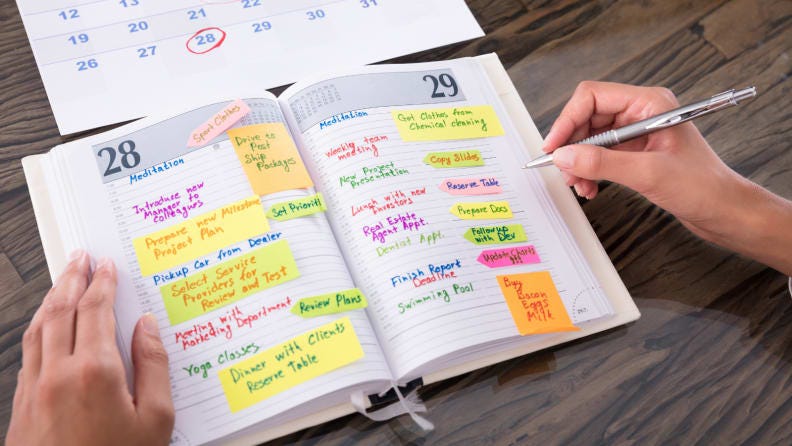 12 13 14 15
19 20 21 22 23 24
26 27 28 29 30 31
28
Sport Clothes
Meditation
Drive to
Post
Ship
Packages
Introduce new
Manager to
colleagues
Set Priority
Prepare new Milestone
Project Plan
Pickup Car from Dealer
Select Service
Providers for
Review and Test
Review Plans
Meeting with
Marketing Department
Yoga Classes
Dinner with Clients
Reserve Table
29
Meditation
Got Clothes from
Chemical cleaning
Weekly team
meeting
Copy Slides
New Project
Presentation
Reserve Table
Lunch with new
investors
Prepare Docs
Real Estate
Agent Appt.
Followup
with Dev
Dentist Appt.
Update Charts
Finish Report
Deadline
Buy
Bacon
Eggs
Milk
Swimming Pool